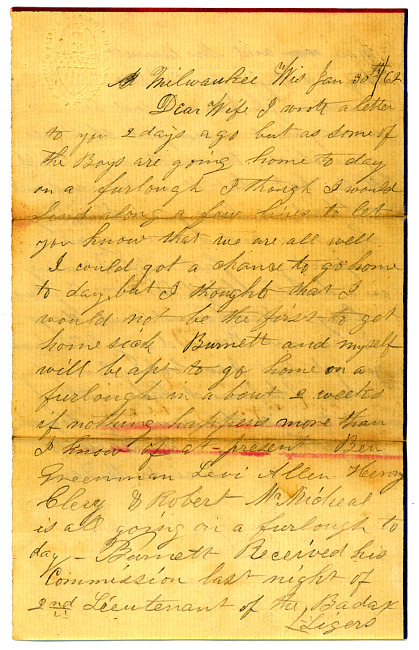 Milwaukee Wis Jan 30th/62
Dear Wife I wrote a letter
to you 2 days ago but as some of
the Boys are going home to day
on a furlough I though I would
Send along a few lines to let
you know that we are all well
I could got a chance to go home
to day but I thought that I
would not be the first to get
home sick Burnett and myself
will be apt to go home on a
furlough in about 2 weeks
if nothing happens more than
I know of at present Ben
Greenman Levi Allen Henry
Clery & Robert McMicheal
is all going on a furlough to
day - Burnett Received his
Commission last night of
2nd Lieutenant of the Badax
Tigers